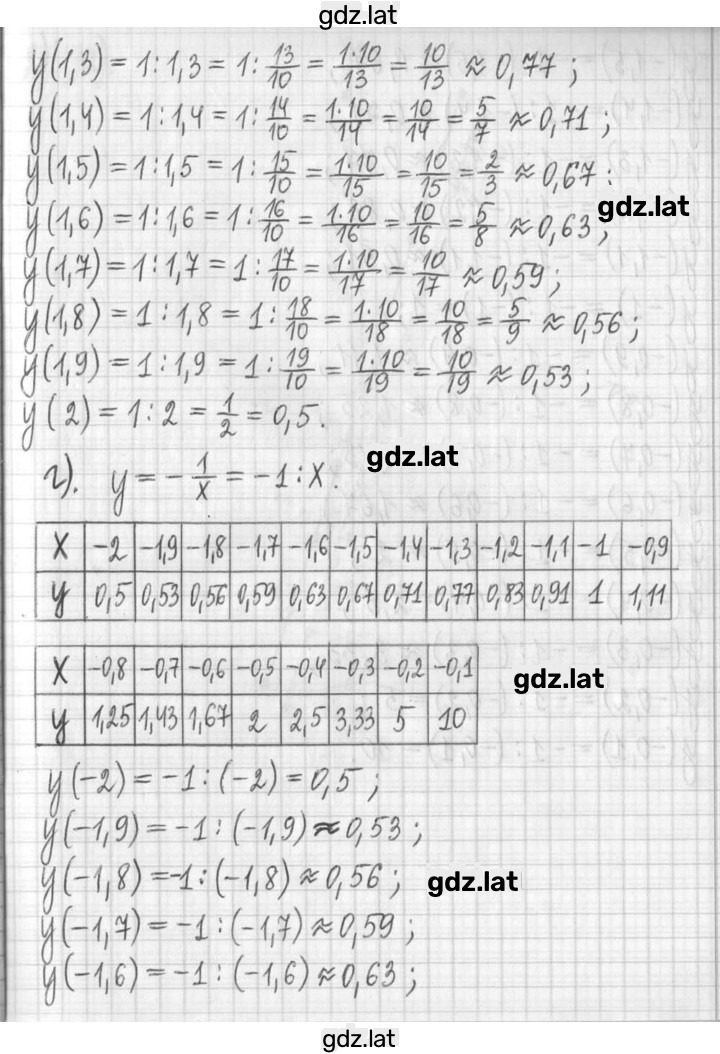 gdz.lat
y(1,3) = 1 : 1,3 = 1 : 13/10 = 1·10/13 = 10/13 ≈ 0,77 ;
y(1,4) = 1 : 1,4 = 1 : 14/10 = 1·10/14 = 10/14 = 5/7 ≈ 0,71 ;
y(1,5) = 1 : 1,5 = 1 : 15/10 = 1·10/15 = 10/15 = 2/3 ≈ 0,67 :
gdz.lat
y(1,6) = 1 : 1,6 = 1 : 16/10 = 1·10/16 = 10/16 = 5/8 ≈ 0,63 ;
y(1,7) = 1 : 1,7 = 1 : 17/10 = 1·10/17 = 10/17 ≈ 0,59 ;
y(1,8) = 1 : 1,8 = 1 : 18/10 = 1·10/18 = 10/18 = 5/9 ≈ 0,56 ;
y(1,9) = 1 : 1,9 = 1 : 19/10 = 1·10/19 = 10/19 ≈ 0,53 ;
y(2) = 1 : 2 = 1/2 = 0,5 .
gdz.lat
г). y = - 1/x = -1 : x .
x -2 -1,9 -1,8 -1,7 -1,6 -1,5 -1,4 -1,3 -1,2 -1,1 -1 -0,9
y 0,5 0,53 0,56 0,59 0,63 0,67 0,71 0,77 0,83 0,91 1 1,11
x -0,8 -0,7 -0,6 -0,5 -0,4 -0,3 -0,2 -0,1
gdz.lat
y 1,25 1,43 1,67 2 2,5 3,33 5 10
y(-2) = -1 : (-2) = 0,5 ;
y(-1,9) = -1 : (-1,9) ≈ 0,53 ;
y(-1,8) = -1 : (-1,8) ≈ 0,56 ;
gdz.lat
y(-1,7) = -1 : (-1,7) ≈ 0,59 ;
y(-1,6) = -1 : (-1,6) ≈ 0,63 ;
gdz.lat